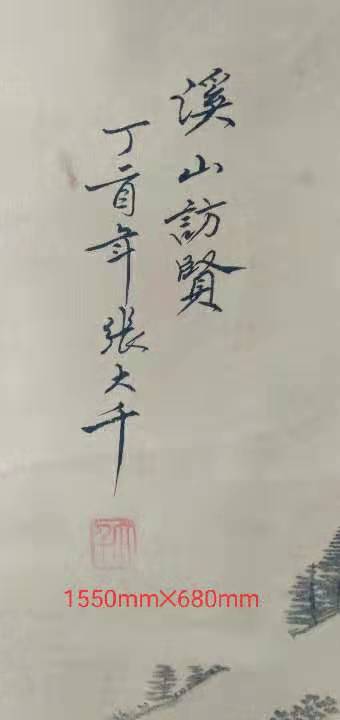 溪山訪賢
丁酉年張大千
1550mm×680mm